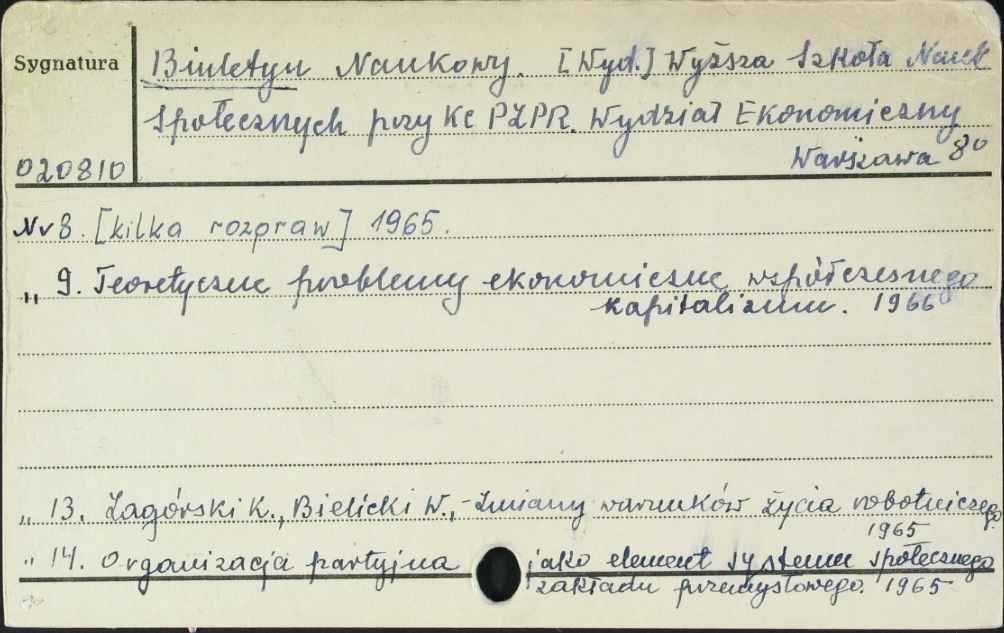 Sygnatura
Biuletyn Naukowy. [Wyd.] Wyższa Szkoła Nauk
Społecznych przy KC PZPR. Wydział Ekonomiczny
020810
Warszawa 8°
Nr 8. [kilka rozpraw] 1965.
„ 9. Teoretyczne problemy ekonomiczne współczesnego
kapitalizmu. 1966
„ 13. Zagórski K., Bielicki W., - Zmiany warunków życia robotniczego.
1965
„ 14. Organizacja partyjna jako element systemu społecznego
zakładu przemysłowego. 1965